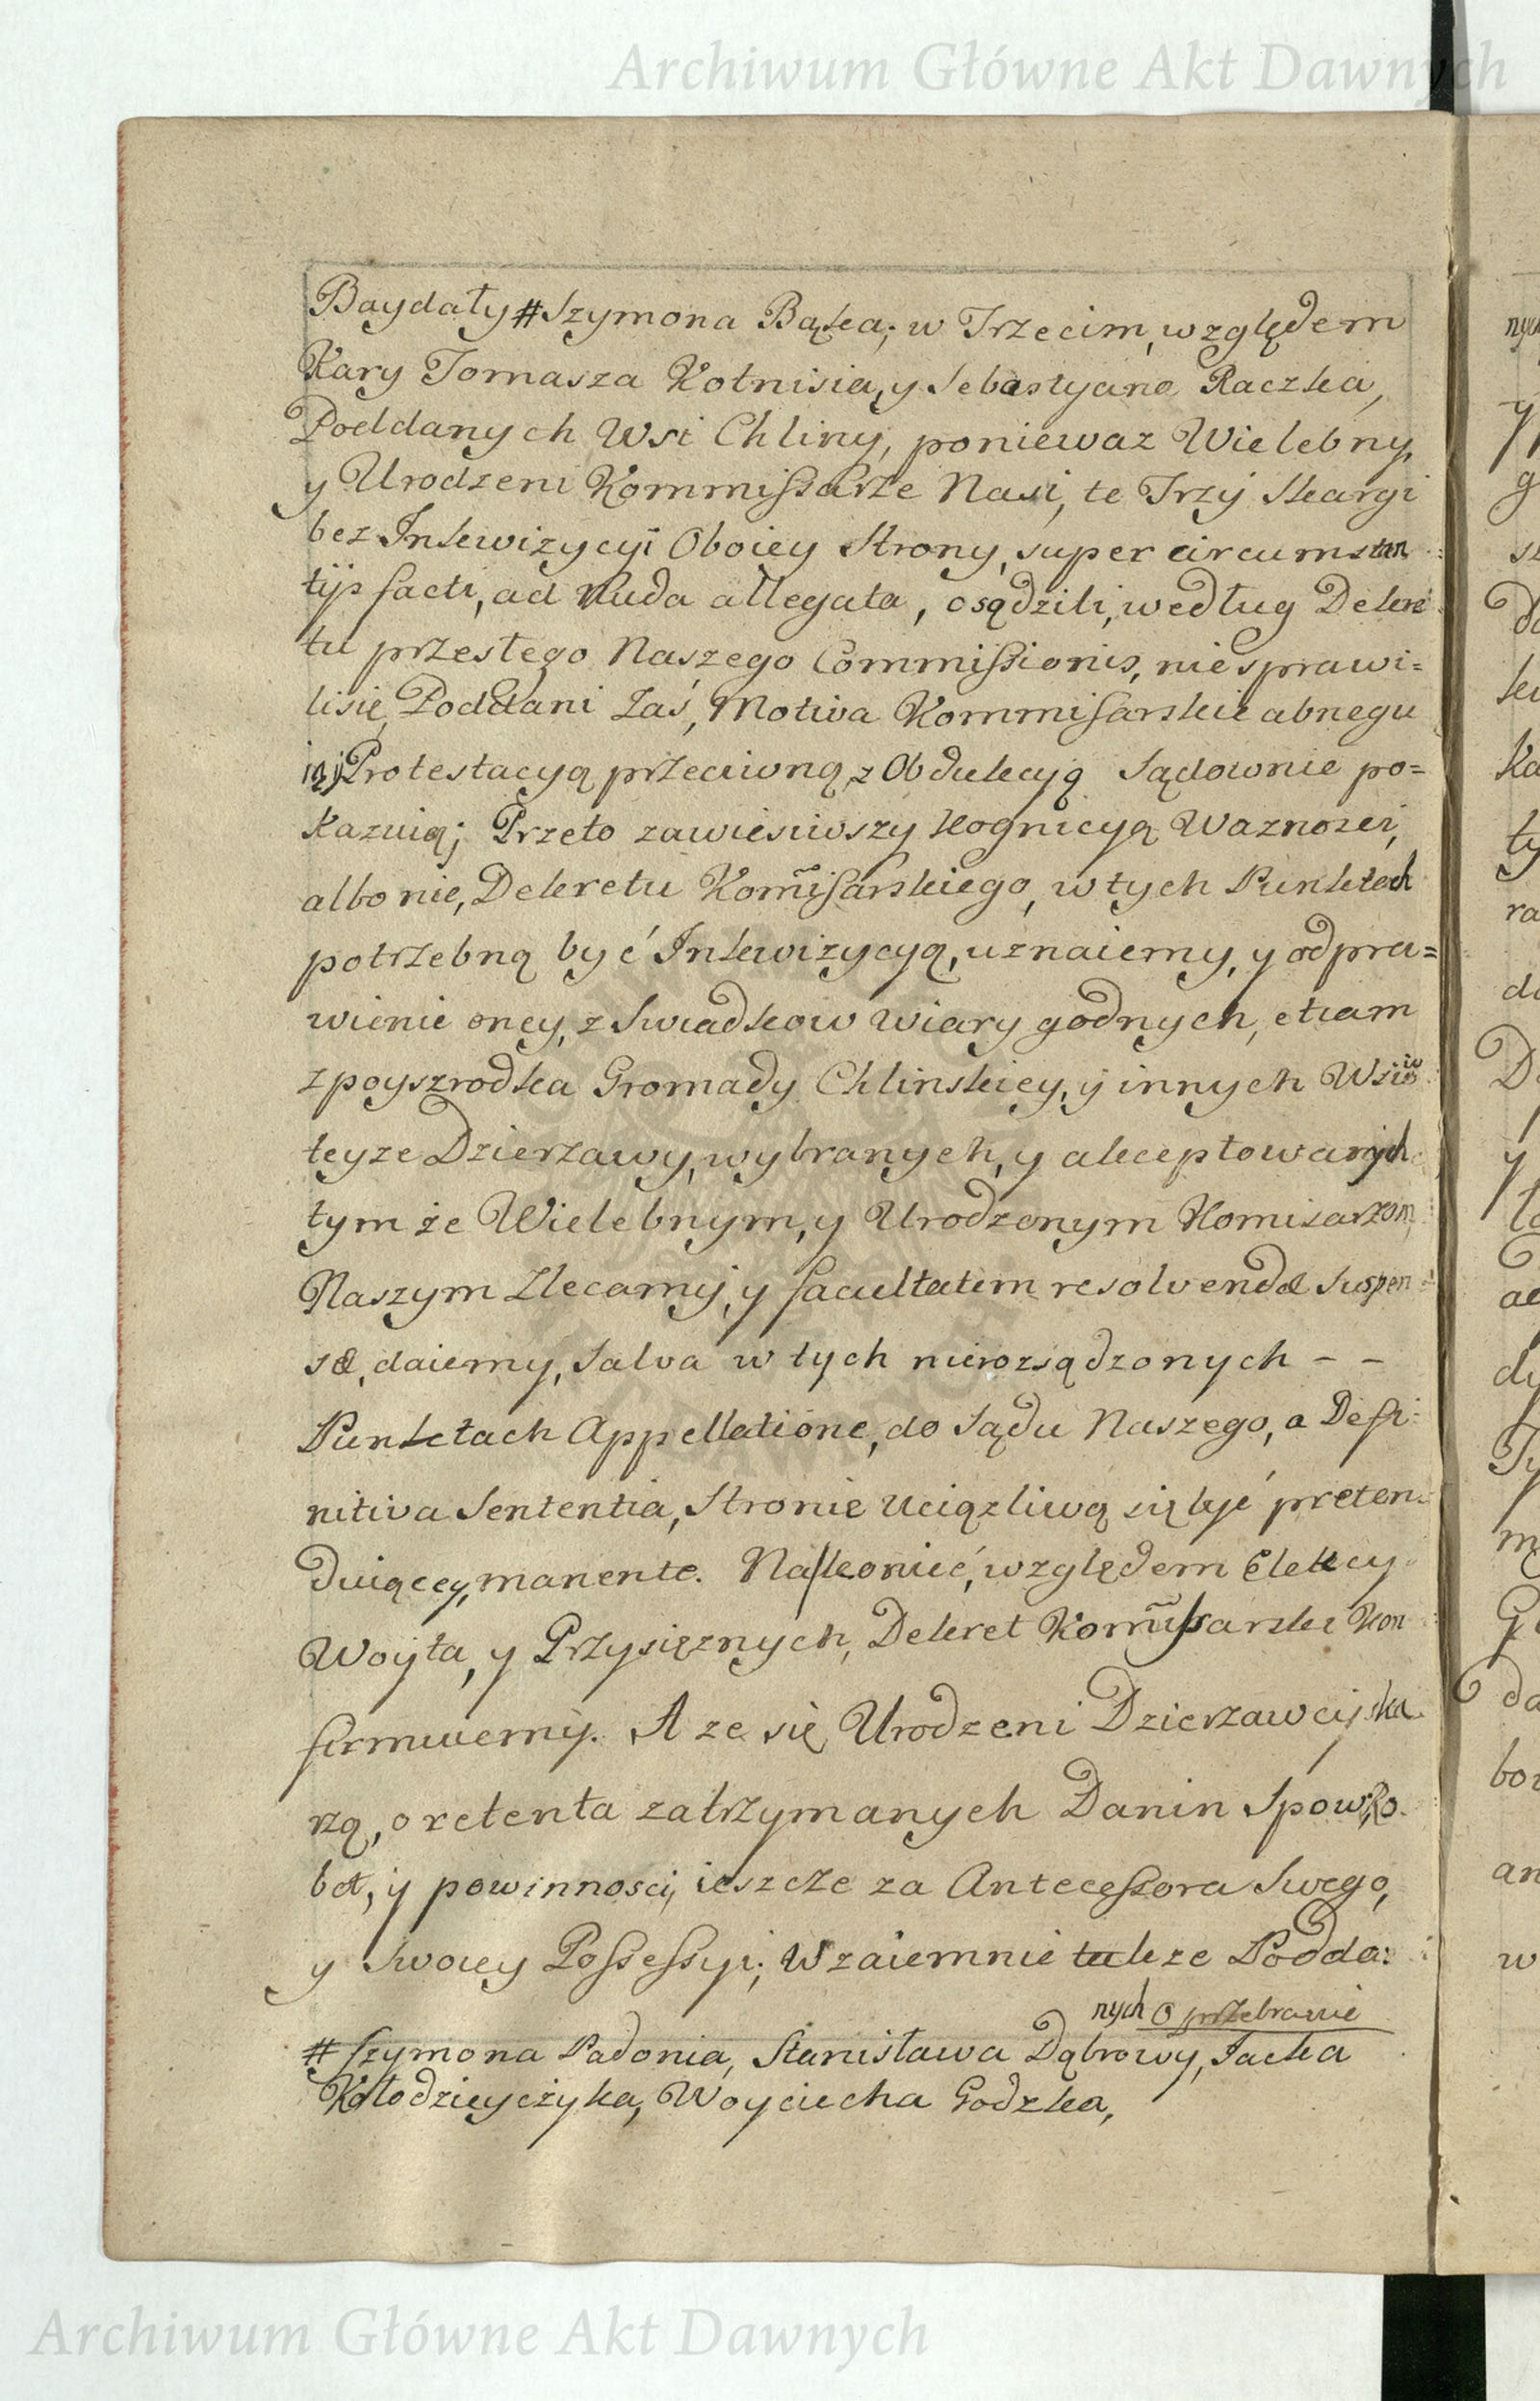 Archiwum Główne Akt Dawnych
Baydały # Szymona Bąka; w Trzecim, względem
Kary Tomasza Kotnisia, y Sebastyana Raczka,
Poddanych Wsi Chliny, poniewaz Wielebny,
y Urodzeni Kommißarze Nasi, te Trzy Skargi
bez Inkwizycyi Oboiey Strony, super circumstan
tijs facti, ad Nuda allegata, osądzili, według Dekre
tu przeszłego Naszego Commißionis, nie sprawi=
li się, Poddani Zaś, Motiva Kommisarskie abnegu
ią, y Protestacyą przeciwną, z Obdukcyą Sądownie po=
kazuią; Przeto zawiesiwszy kognicyą Waznosci,
albo nie, Dekretu Kom̃isarskiego, w tych Punktach
potrzebną być Inkwizycyą, uznaiemy, y odpra=
wienie oney, z Swiadkow wiary godnych, etiam
zpoyszrodka Gromady Chlinskiey, y innych Wsiów
teyze Dzierzawy, wybranych, y akceptowanych
tym że Wielebnym, y Urodzonym Komisarzom
Naszym Zlecamy, y facultatem resolvendæ Suspen
sæ, daiemy, Salva w tych nierozsądzonych - -
Punktach Appellatione, do Sądu Naszego, a Defi=
nitiva Sententia, Stronie uciązliwą się być preten=
duiącey, manente. Nakoniec, względem Elekcy
Woyta, y Przysięznych, Dekret Kom̃ißarski kon
firmuiemy. A ze się Urodzeni Dzierzawcy ska
rzą, o retenta zatrzymanych Danin Spow, Ro
bot, y powinnosci, ieszcze za Anteceßora Swego,
y Swoiey Poßeßyi; Wzaiemnie takze Podda:
nych o przebranie
# Szymona Ladonia, Stanisława Dąbrowy, Jacka
Kołodzieyczyka, Woyciecha Godzka,
Archiwum Główne Akt Dawnych